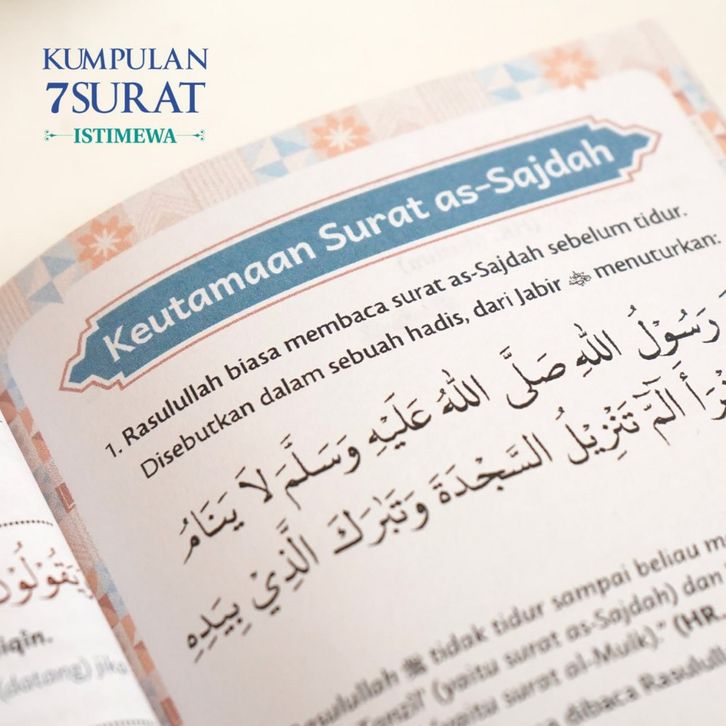 KUMPULAN
7SURAT
ISTIMEWA
Keutamaan Surat as-Sajdah
1. Rasulullah biasa membaca surat as-Sajdah sebelum tidur.
Disebutkan dalam sebuah hadis, dari Jabir menuturkan:
رَسُوْلُ اللهِ صَلَّى اللهُ عَلَيْهِ وَسَلَّمَ لَا يَنَامُ
الٓمّٓ تَنْزِيْلُ السَّجْدَةَ وَتَبٰرَكَ الَّذِيْ بِيَدِهِ
tidak tidur sampai beliau
(yaitu surat as-Sajdah) dan
surat al-Mulk)." (HR.
dibaca Rasulullah
يَقُوْلُوْنَ
(datang) jika